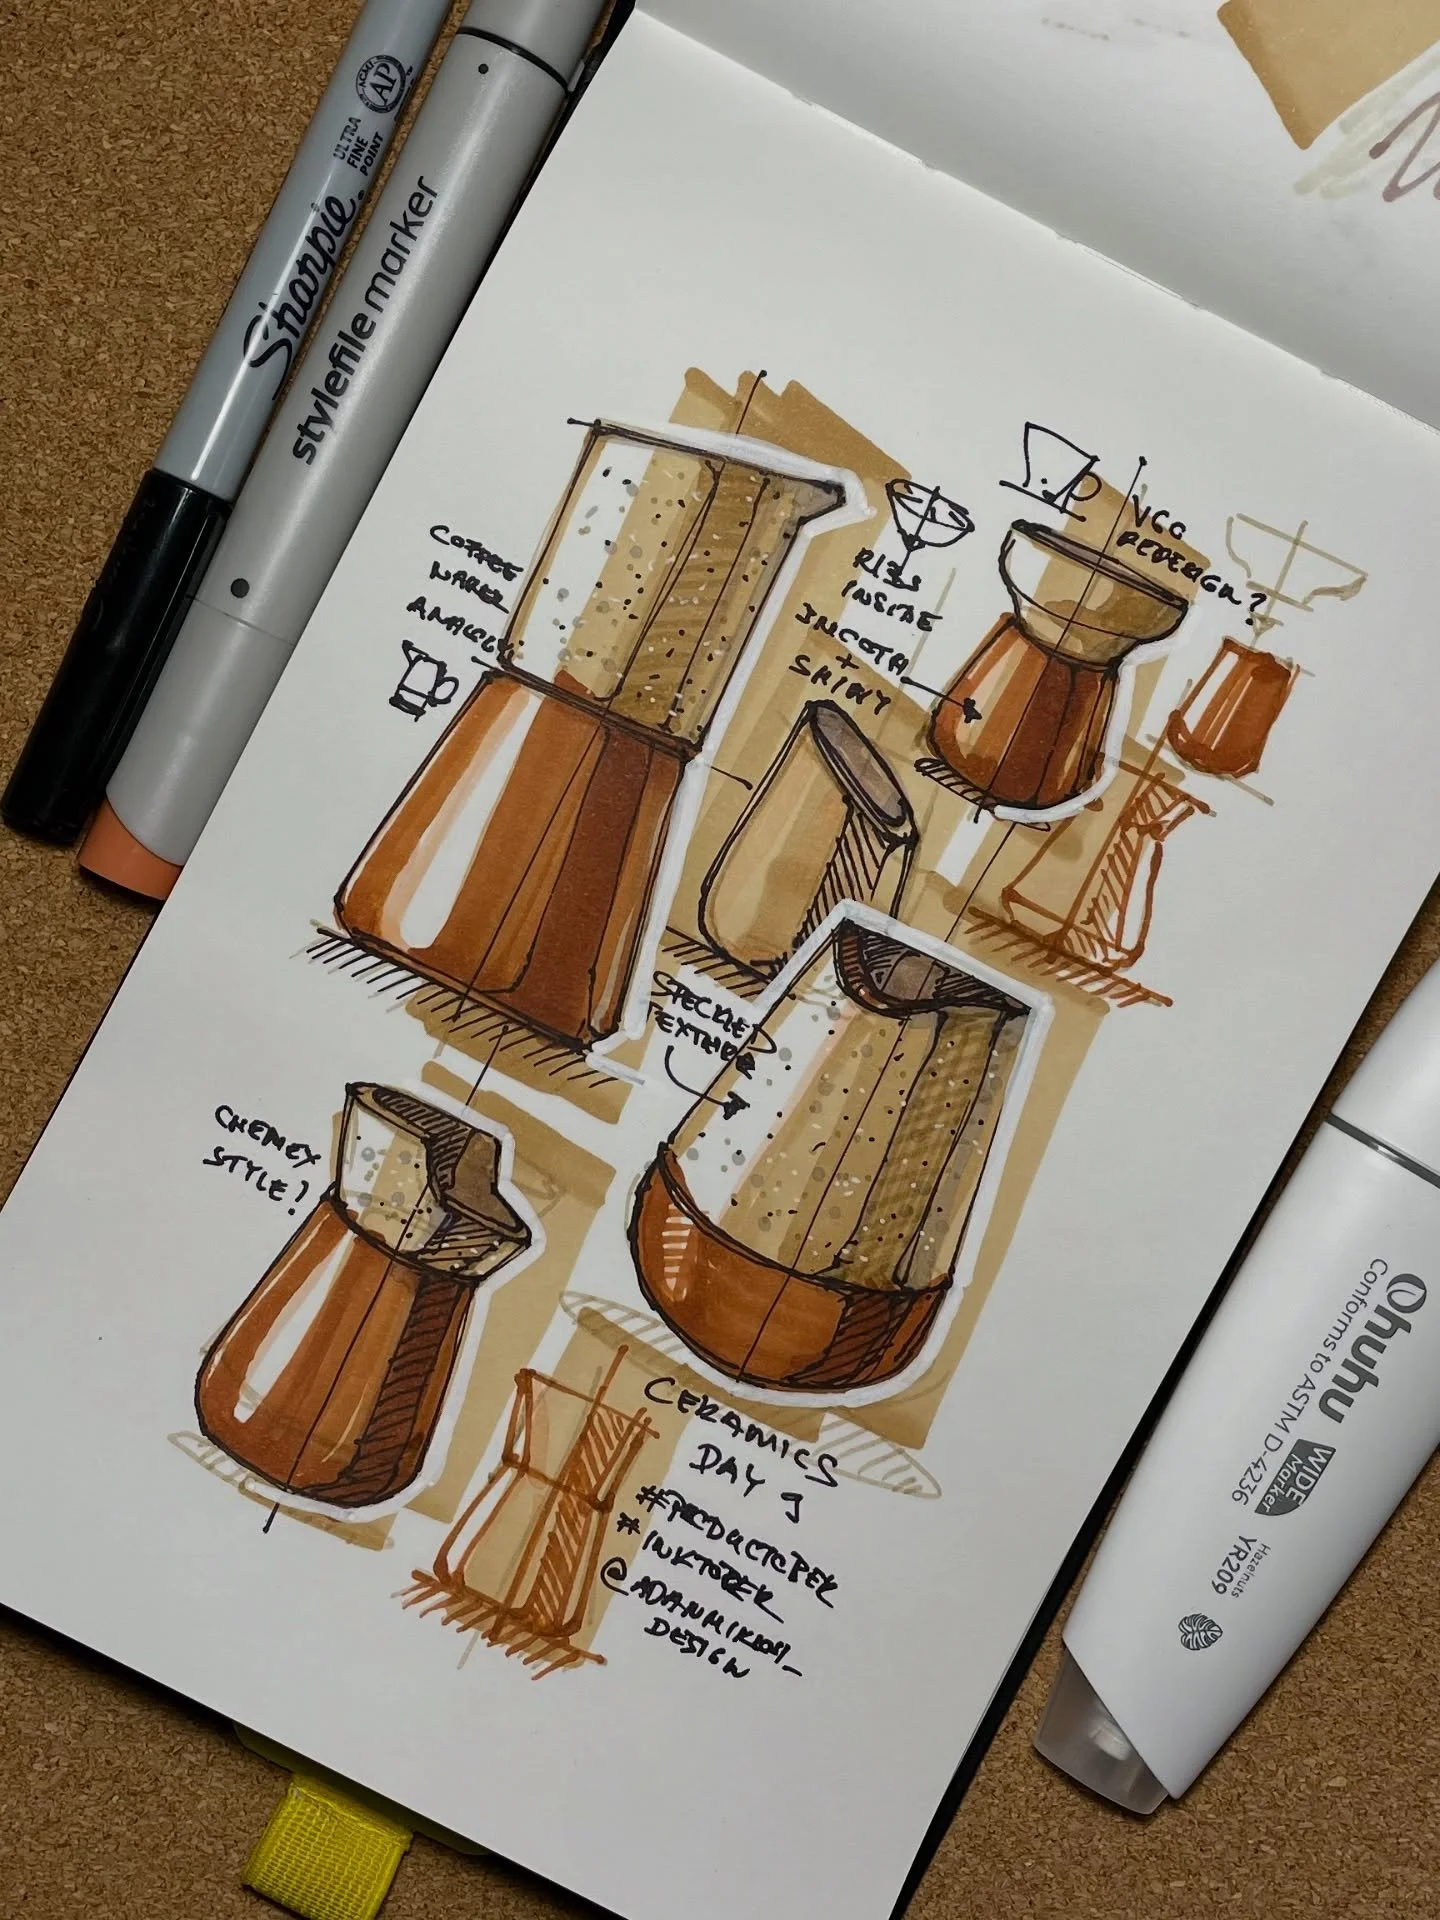 ACMI
AP
ULTRA
FINE
POINT
Sharpie.
stylefile marker
COFFEE
MAKER
V60
REDESIGN?
RIBS
INSIDE
SMOOTH
+
SHINY
SPECKLED
TEXTURE
CHEMEX
STYLE?
CERAMICS
DAY 9
#PRODUCTOBER
#INKTOBER
DESIGN
Ohuhu
Conforms to ASTM D-4236
WIDE
Marker
YR209
Hazelnuts